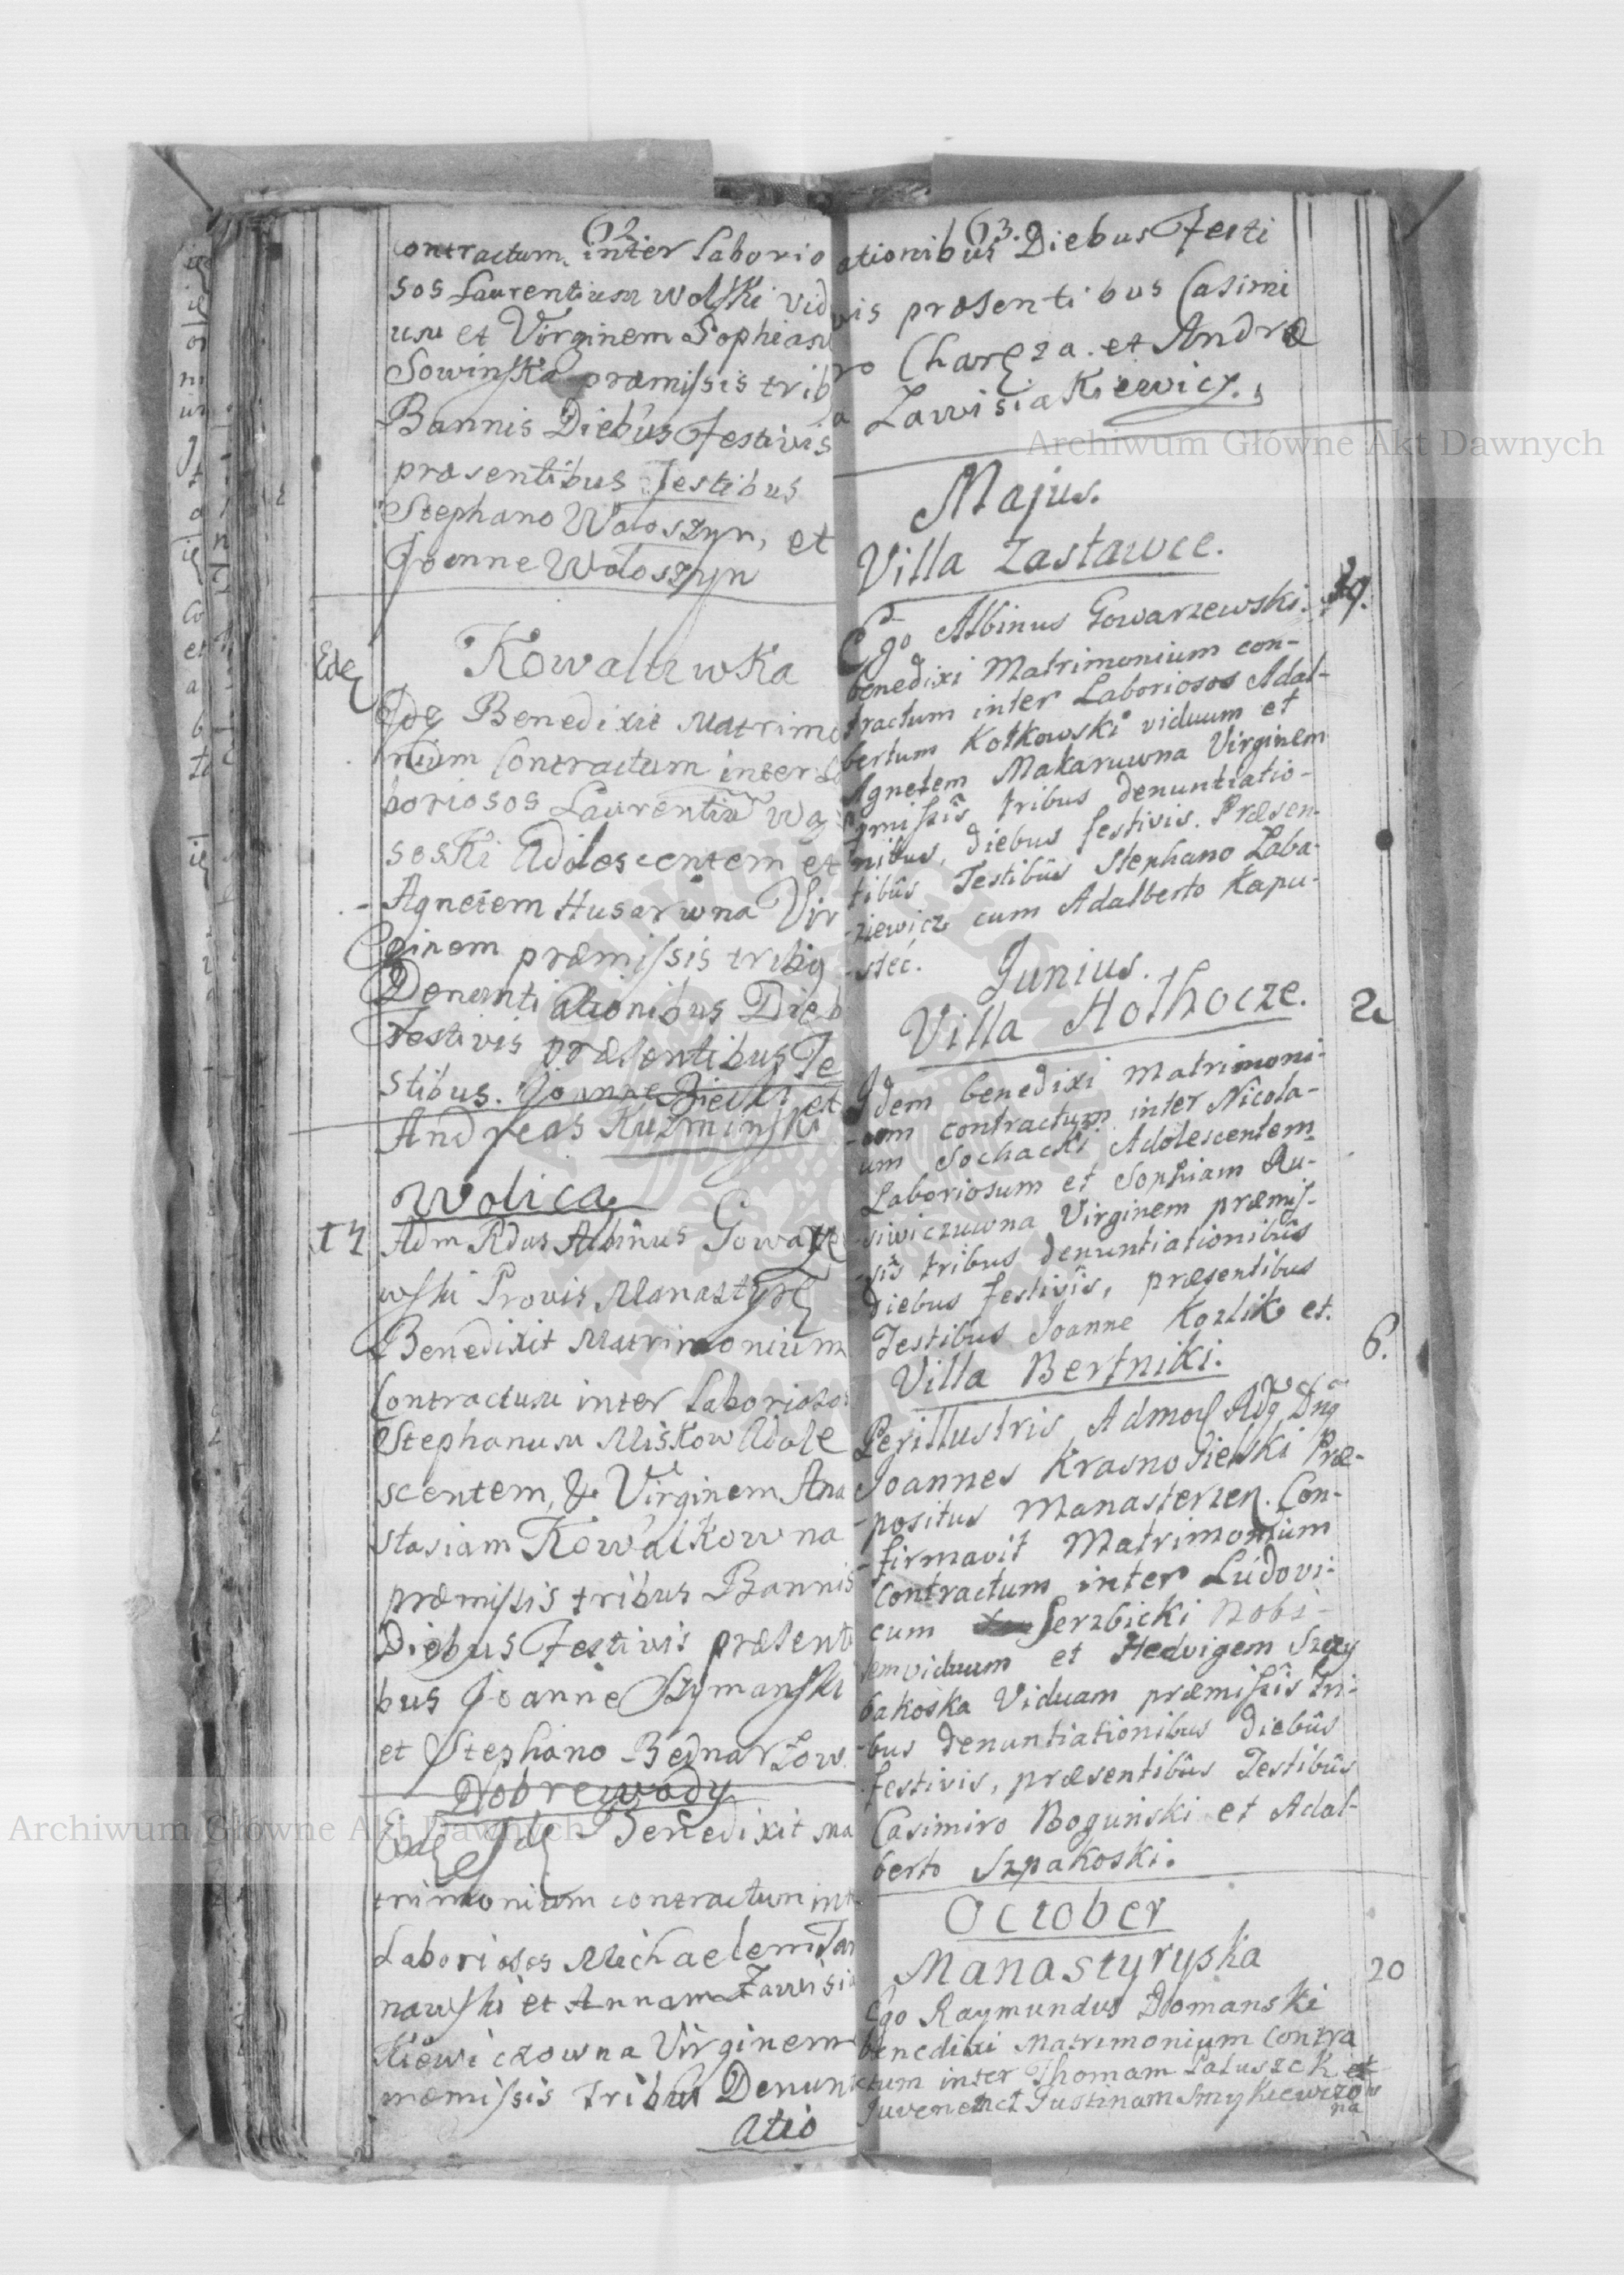 62.
contractum inter Laborio
sos Laurentium Wolski vid
uum et Virginem Sophiam
Sowinska præmissis trib
Bannis Diebus Festivis
præsentibus Testibus
Stephano Wołoszyn, et
Joanne Wołoszyn
Kowalowka
Ede
Ide Benedixit Matrimo
nium Contractum inter La
boriosos Laurentiū Wą
soski Adolescentem et
Agnetem Husarowna Vir
ginem præmissis tribq
Denunti ationibus Dieb
Festivis præsentibus Te
stibus. Joanne et
Andreas Kuzminski
Wolica
17 Adm Rdus Albinus Gowarze
wski Provis Manastyr
Benedixit Matrimonium
Contractum inter Laborioso
Stephanum Miskow Adole
scentem, & Virginem Ana
stasiam Kowalkowna
præmissis tribus Bannis
Diebus Festivis præsenti
bus Joanne Szymanski
et Stephano Bednarzow
Dobrewody
Eode Ide Benedixit Ma
trimonium contractum int
Laboriosos Michaelem Tar
nawski et Annam Zawisia
Kiewiczowna Virginem
præmissis tribus Denunt
atio
63.
ationibus Diebus Festi
vis præsentibus Casimi
ro Charęza et Andre
a Zawisiakiewicz.
Majus.
Villa Zastawce.
Ego Albinus Gowarzewski 29.
benedixi Matrimonium con-
tractum inter Laboriosos Adal-
bertum Kotkowski viduum et
Agnetem Makaruwna Virginem
præmissis tribus denuntiatio-
nibus, diebus festivis. Præsen-
tibûs Testibûs Stephano Laba-
-ziewicz cum Adalberto Kapu-
-stec.
Junius.
Villa Hołhocze. 2
Idem benedixi Matrimoni-
-um contractum inter Nicola-
um Sochacki Adolescentem
Laboriosum et Sophiam Ru-
-siwiczuwna Virginem præmis-
-sis tribus denuntiationibûs
diebus festivis, præsentibus
Testibus Joanne Kozlik et.
Villa Bertniki. 6.
Perillustris Admod Rdq Dnq
Joannes Krasnosielski Præ-
-positus Manasterzen. Con-
-firmavit Matrimonium
contractum inter Ludovi-
cum Serzbicki Nobi-
lem viduum et Hedvigem Szczy
bakoska Viduam præmissis tri-
-bus denuntiationibus diebûs
festivis, præsentibûs Testibûs
Casimiro Boguński et Adal-
berto Szpakoski.
October
Manastyryska 20
Ego Raymundus Domanski
benedixi Matrimonium Contra
ctum inter Thomam Latuszek
Juvenem et Justinam Smykiewiczow
na
Archiwum Główne Akt Dawnych
Archiwum Główne Akt Dawnych